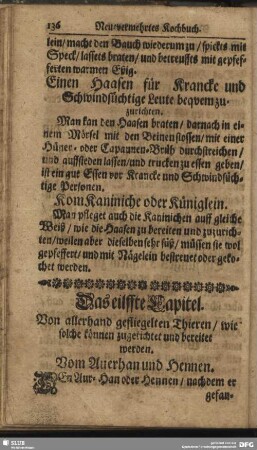 136 Neu-vermehrtes Kochbuch.
lein/ macht den Bauch wiederum zu / spickts mit
Speck/ lassets braten/ und betreuffts mit gepfef-
ferten warmen Eßig.
Einen Haasen für Krancke und
Schwindsüchtige Leute beqvem zu-
zurichten.
Man kan den Haasen braten/ darnach in ei-
nem Mörsel mit den Beinen stossen/ mit einer
Hüner- oder Capaunen-Brüh/ durchstreichen/
und auffsieden lassen/ und trucken zu essen geben/
ist ein gut Essen vor Krancke und Schwindsüch-
tige Personen.
Kom Kaniniche oder Küniglein.
Man pfleget auch die Kaninichen auff gleiche
Weiß/ wie die Haasen zu bereiten und zuzurich-
ten/ weilen aber dieselben sehr süß/ müssen sie wol
gepfeffert/ und mit Nägelein bestreuet oder geko-
chet werden.
Das eilffte Capitel.
Von allerhand geflügelten Thieren/ wie
solche können zugerichtet und bereitet
werden.
Vom Auerhan und Hennen.
Den Aur-Han oder Hennen / nachdem er
gefan-
SLUB
DFG